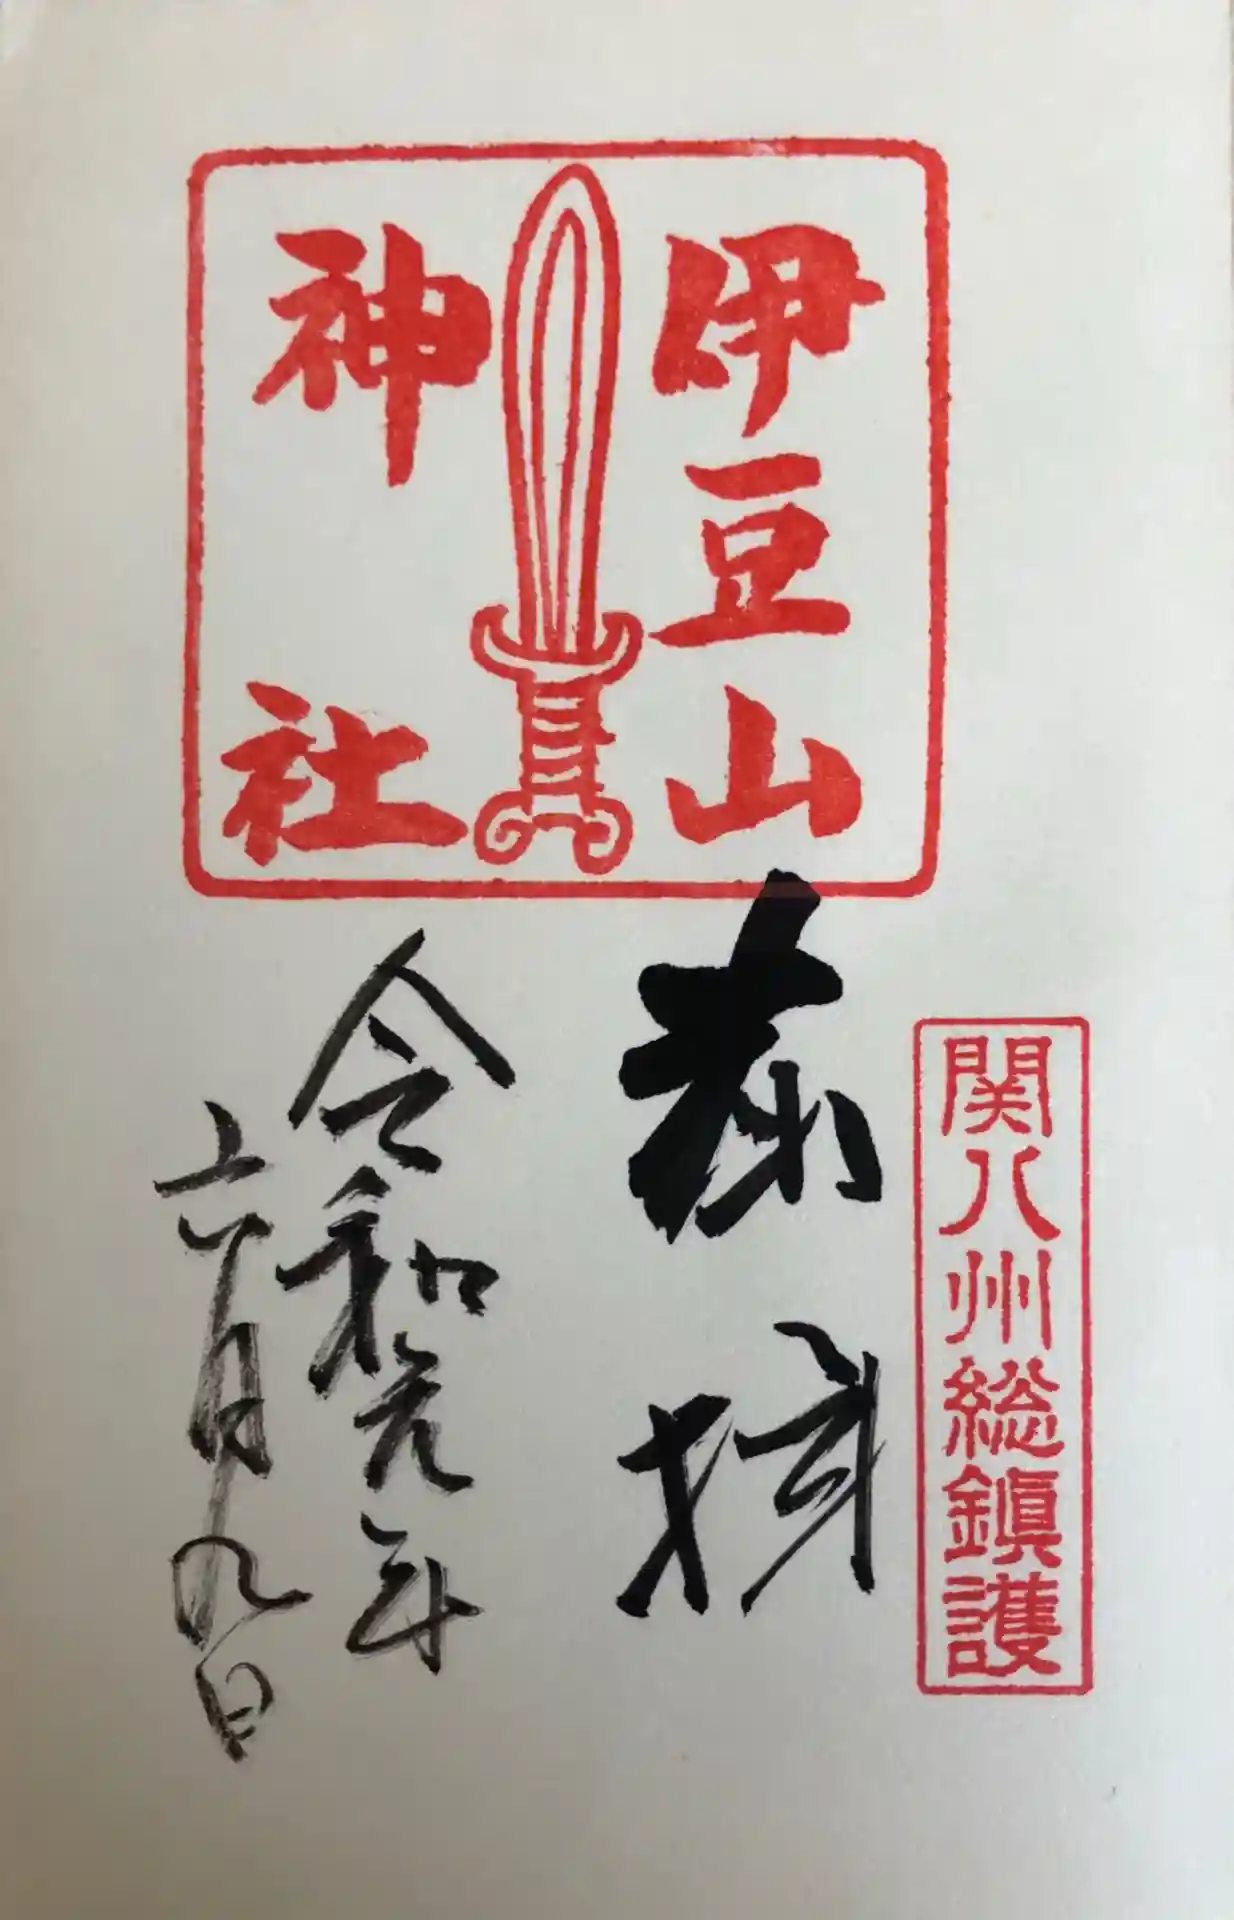 関八州総鎮護
伊豆山
神社
奉拝
令和元年
六月九日